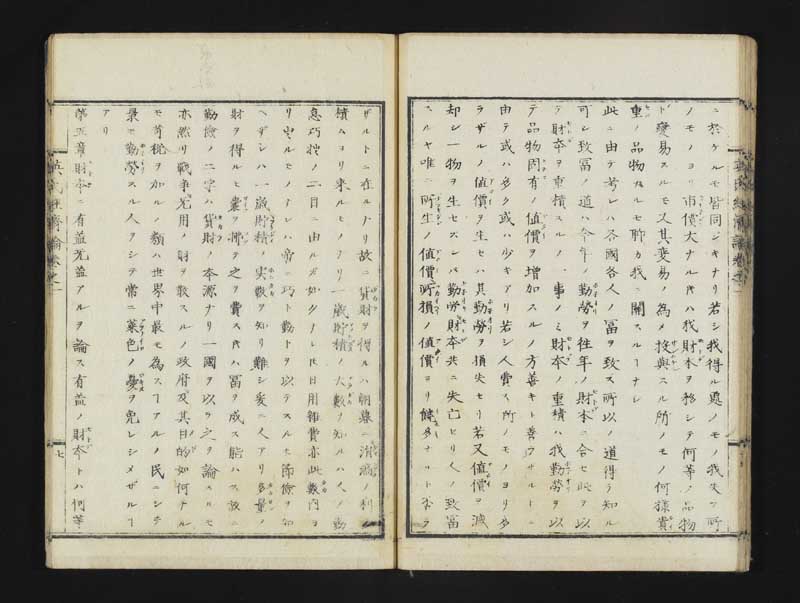 ニ於ケルモ皆同ジキナリ若シ我得ル處ノモノ我失フ所
ノモノヨリ市價大ナル時ハ我財本ヲ移シテ何等ノ品物
ト變易スルモ又其変易ノ為メ投與スル所ノモノ何様貴
重ノ品物タルモ聊カ我ニ關スルーナシ
此ニ由テ考レハ各國各人ノ冨ヲ致ス所以ノ道得テ知ル
可シ致冨ノ道ハ今年ノ勤勞ヲ往年ノ財本ニ合セ此ヲ以
テ財本ヲ重積スルノ一事ノミ財本ノ重積ハ我勤勞ヲ以
テ品物固有ノ値價ヲ増加スルノ方善キト善カラザルトニ
由テ或ハ多ク或ハ少キアリ若シ人費ス所ノモノヨリ多
ラザルノ値價ヲ生セハ其勤勞ヲ損失セリ若又値價ヲ減
却シ一物ヲ生セズンバ勤勞財本共ニ失亡セリ人ノ致冨
スルヤ唯ニ所生ノ値價所損ノ値價ヨリ饒多ナルト否ラ
ザルトニ在ルナリ故ニ貨財ヲ得ルハ朝暮ニ消滅ノ利
積ムヨリ来ルモノナリ一歳貯積ノ大數ヲ知ルハ人ノ勤
息巧拙ノ二目ニ由ルガ如クナレ𪜈日用雑費亦此數内ヲ
リ出ルモノナレハ帝ニ巧ト勤トヲ以テスルモ節儉ヲ加
ヘザレハ一歳貯積ノ実數ヲ知リ難シ爰ニ人アリ多量ノ
財ヲ得ルモ嚢ヲ拂テ之ヲ費ス時ハ冨ヲ成ス能ハス故ニ
勤儉ノ二字ハ貨財ノ本源ナリ一國ヲ以テ之ヲ論スルモ
亦然リ戰争旡用ノ財ヲ散スルノ政府及其目的如何ナル
モ苛税ヲ加ルノ類ハ世界中最モ為スーアルノ民ニシテ
最モ勤勞スル人ヲシテ常ニ菜色ノ憂ヲ免レシメザルー
アリ
第五章財本ニ有益旡益アルヲ論ス有益ノ財本トハ何等
英氏経濟論卷之一
七